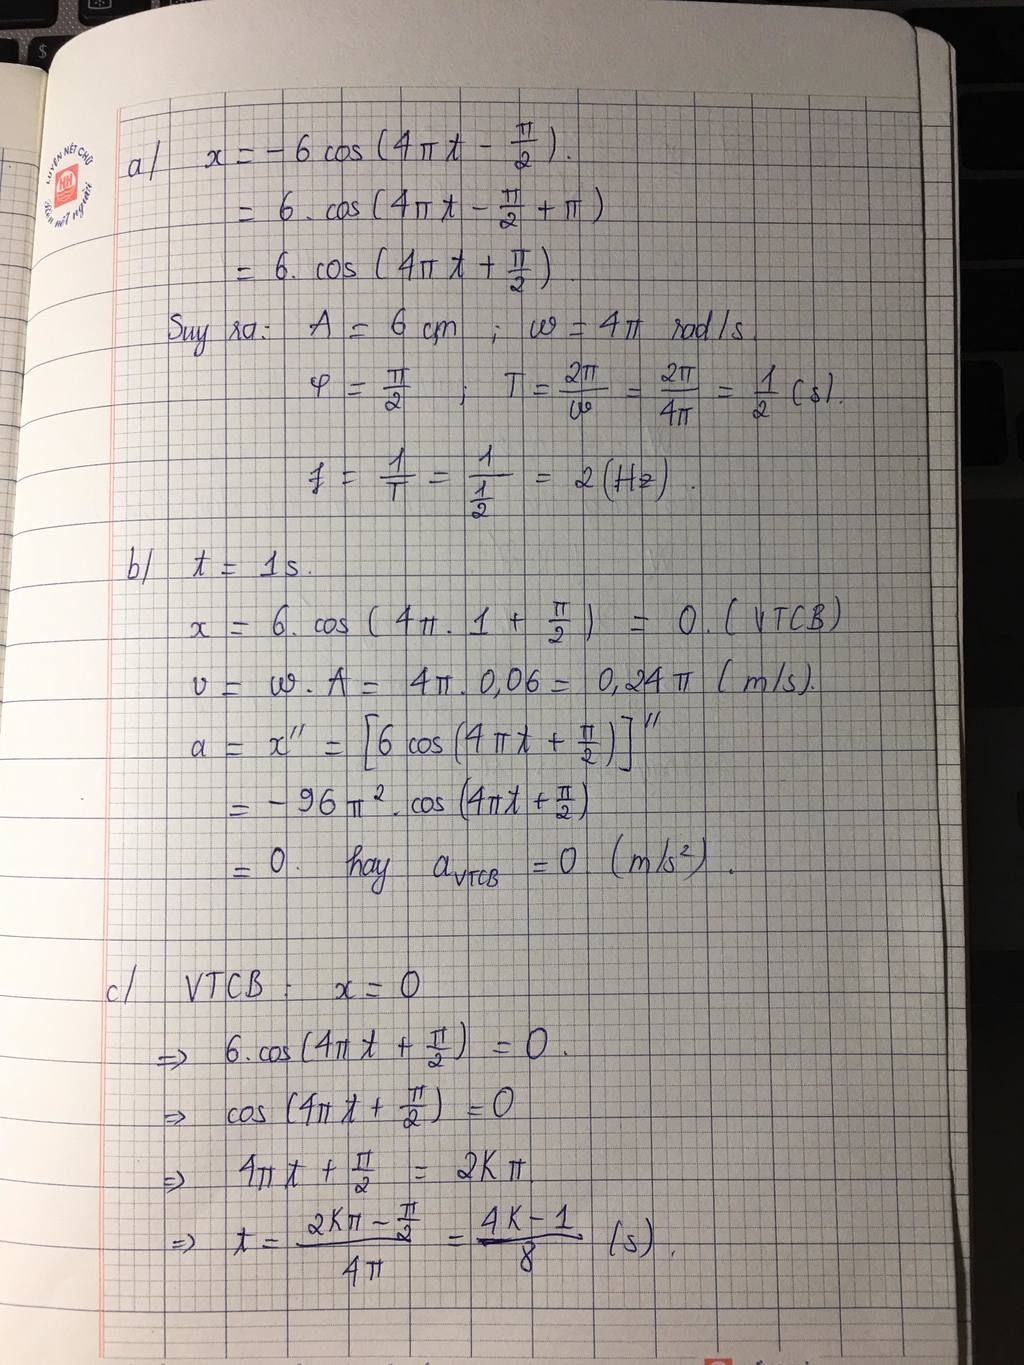 LUYỆN NÉT CHỮ
Rèn nết người
a/ x = - 6 cos (4πt - π/2).
= 6. cos (4πt - π/2 + π)
= 6. cos (4πt + π/2)
Suy ra: A = 6 cm ; ω = 4π rad/s
φ = π/2 ; T = 2π/ω = 2π/4π = 1/2 (s).
f = 1/T = 1/(1/2) = 2 (Hz).
b/ t = 1s.
x = 6. cos (4π. 1 + π/2) = 0. (VTCB)
v = ω. A = 4π. 0,06 = 0,24π (m/s).
a = x'' = [6 cos (4πt + π/2)]''
= - 96π². cos (4πt + π/2)
= 0. hay a_VTCB = 0 (m/s²).
c/ VTCB: x = 0
=> 6. cos (4πt + π/2) = 0.
=> cos (4πt + π/2) = 0
=> 4πt + π/2 = 2Kπ
=> t = (2Kπ - π/2)/4π = (4K - 1)/8 (s).